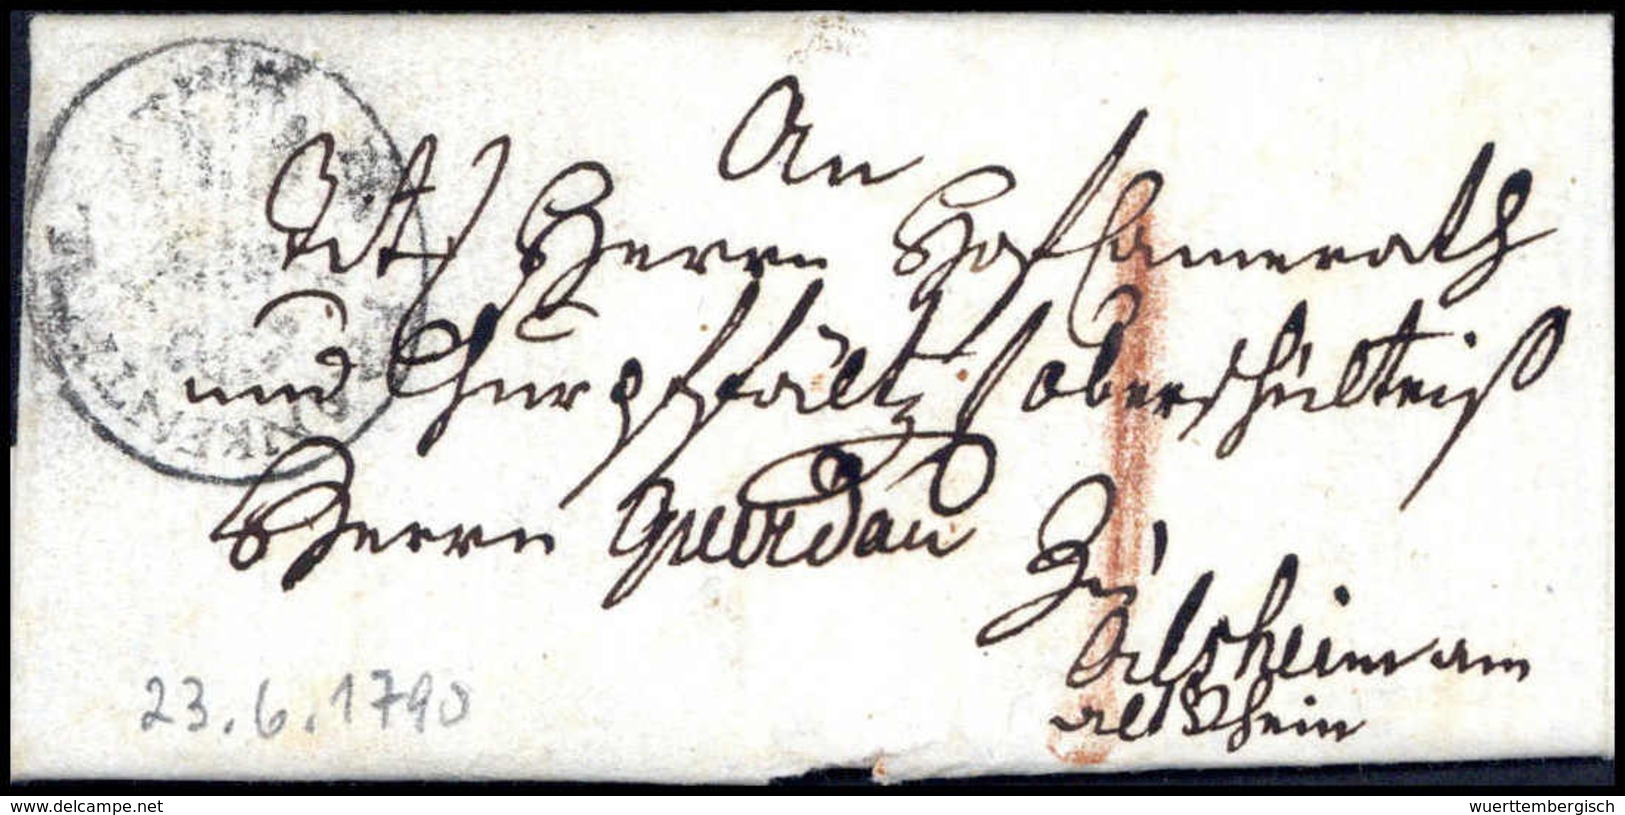 An
Tit. Herrn Hofkamerath
und Churpfältz. Oberschültheiß
Herrn
Zu
Alsheim am
alt Rhein
23.6.1790
www.delcampe.net
wuerttembergisch